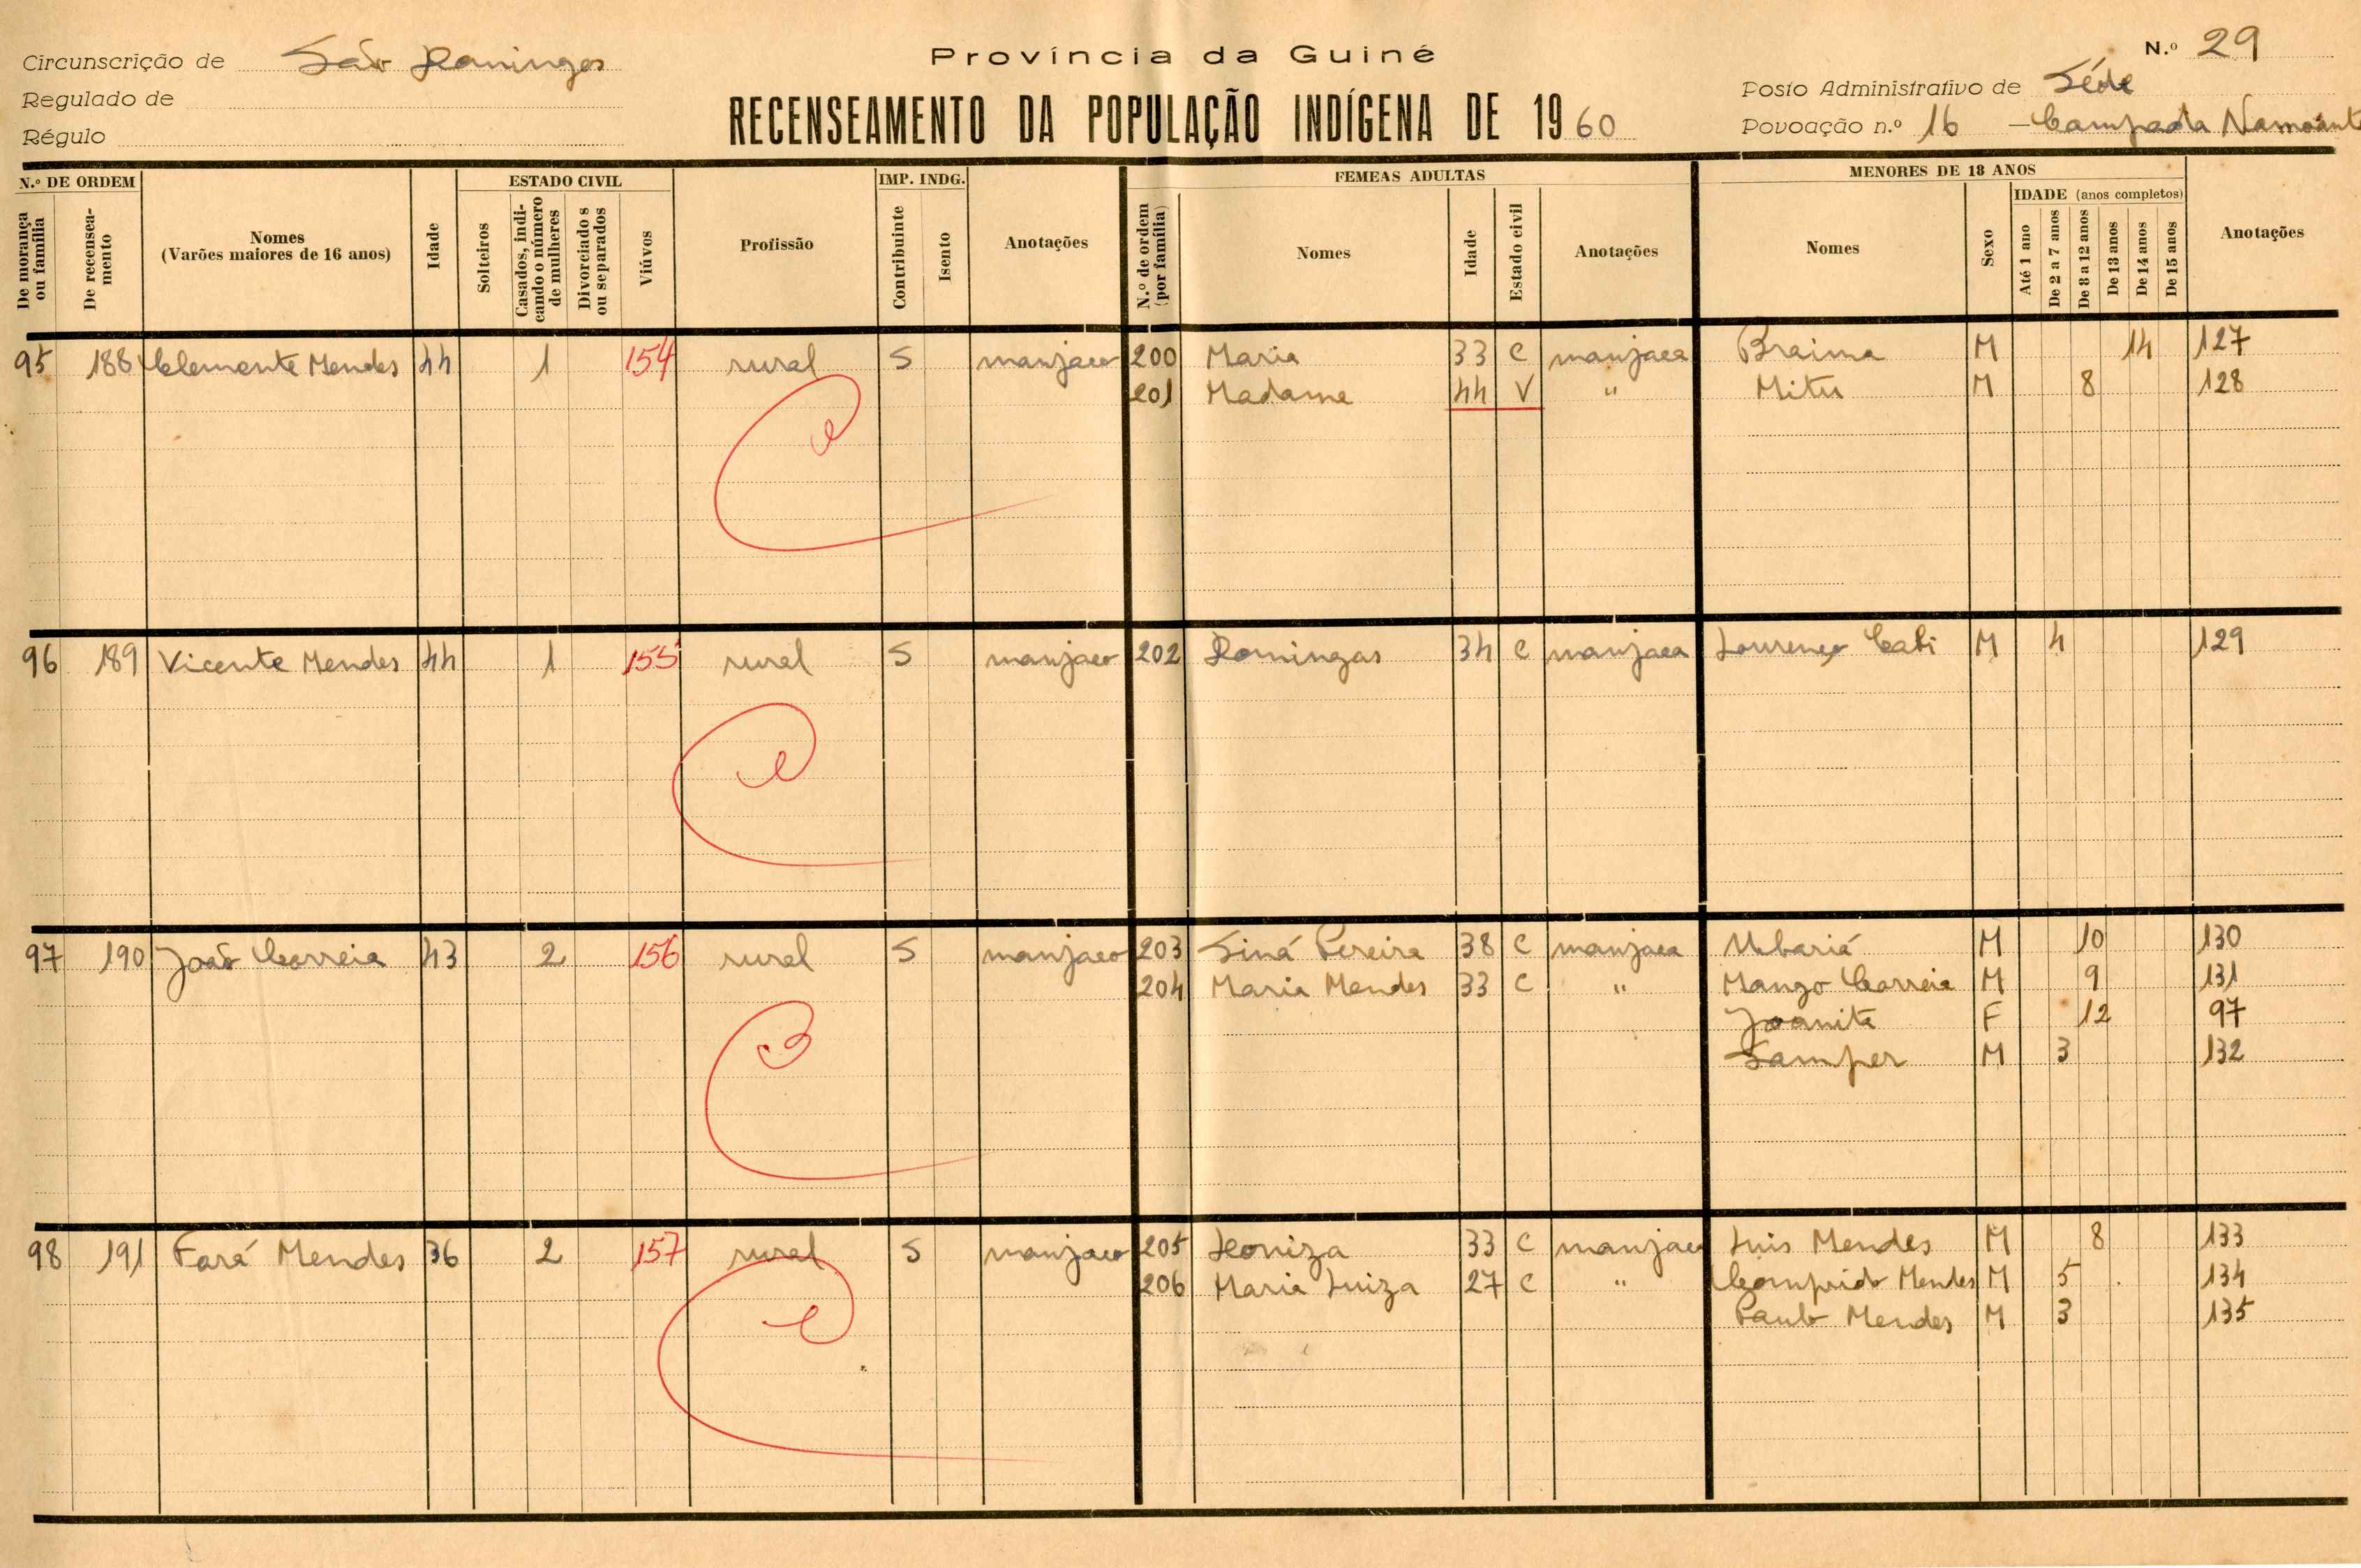 Circunscrição de São Domingos
Regulado de
Régulo
Província da Guiné
RECENSEAMENTO DA POPULAÇÃO INDÍGENA DE 1960
N.º 29
Posto Administrativo de Séde
Povoação n.º 16 – Campada
N.º DE ORDEM
De morança ou família
De recenseamento
Nomes
(Varões maiores de 16 anos)
Idade
ESTADO CIVIL
Solteiros
Casados, indicando o número de mulheres
Divorciados ou separados
Viúvos
Profissão
IMP. INDG.
Contribuinte
Isento
Anotações
FEMEAS ADULTAS
N.º de ordem (por família)
Nomes
Idade
Estado civil
Anotações
MENORES DE 18 ANOS
Nomes
Sexo
IDADE (anos completos)
Até 1 ano
De 2 a 7 anos
De 8 a 12 anos
De 13 anos
De 14 anos
De 15 anos
Anotações
95 188 Clemente Mendes 44 1 154 rural S manjaco 200 Maria 33 C manjaca Braima M 14 127
201 Madame 44 V " Mitu M 8 128
96 189 Vicente Mendes 44 1 155 rural S manjaco 202 Domingas 34 C manjaca Lourenço Cabi M 4 129
97 190 João Correia 43 2 156 rural S manjaco 203 Siná Pereira 38 C manjaca Ubariá M 10 130
204 Maria Mendes 33 C " Mango Correia M 9 131
Joanita F 12 97
Samper M 3 132
98 191 Fará Mendes 36 2 157 rural S manjaco 205 Leoniza 33 C manjaca Luis Mendes M 8 133
206 Maria Luiza 27 C " Comprido Mendes M 5 134
Paulo Mendes M 3 135